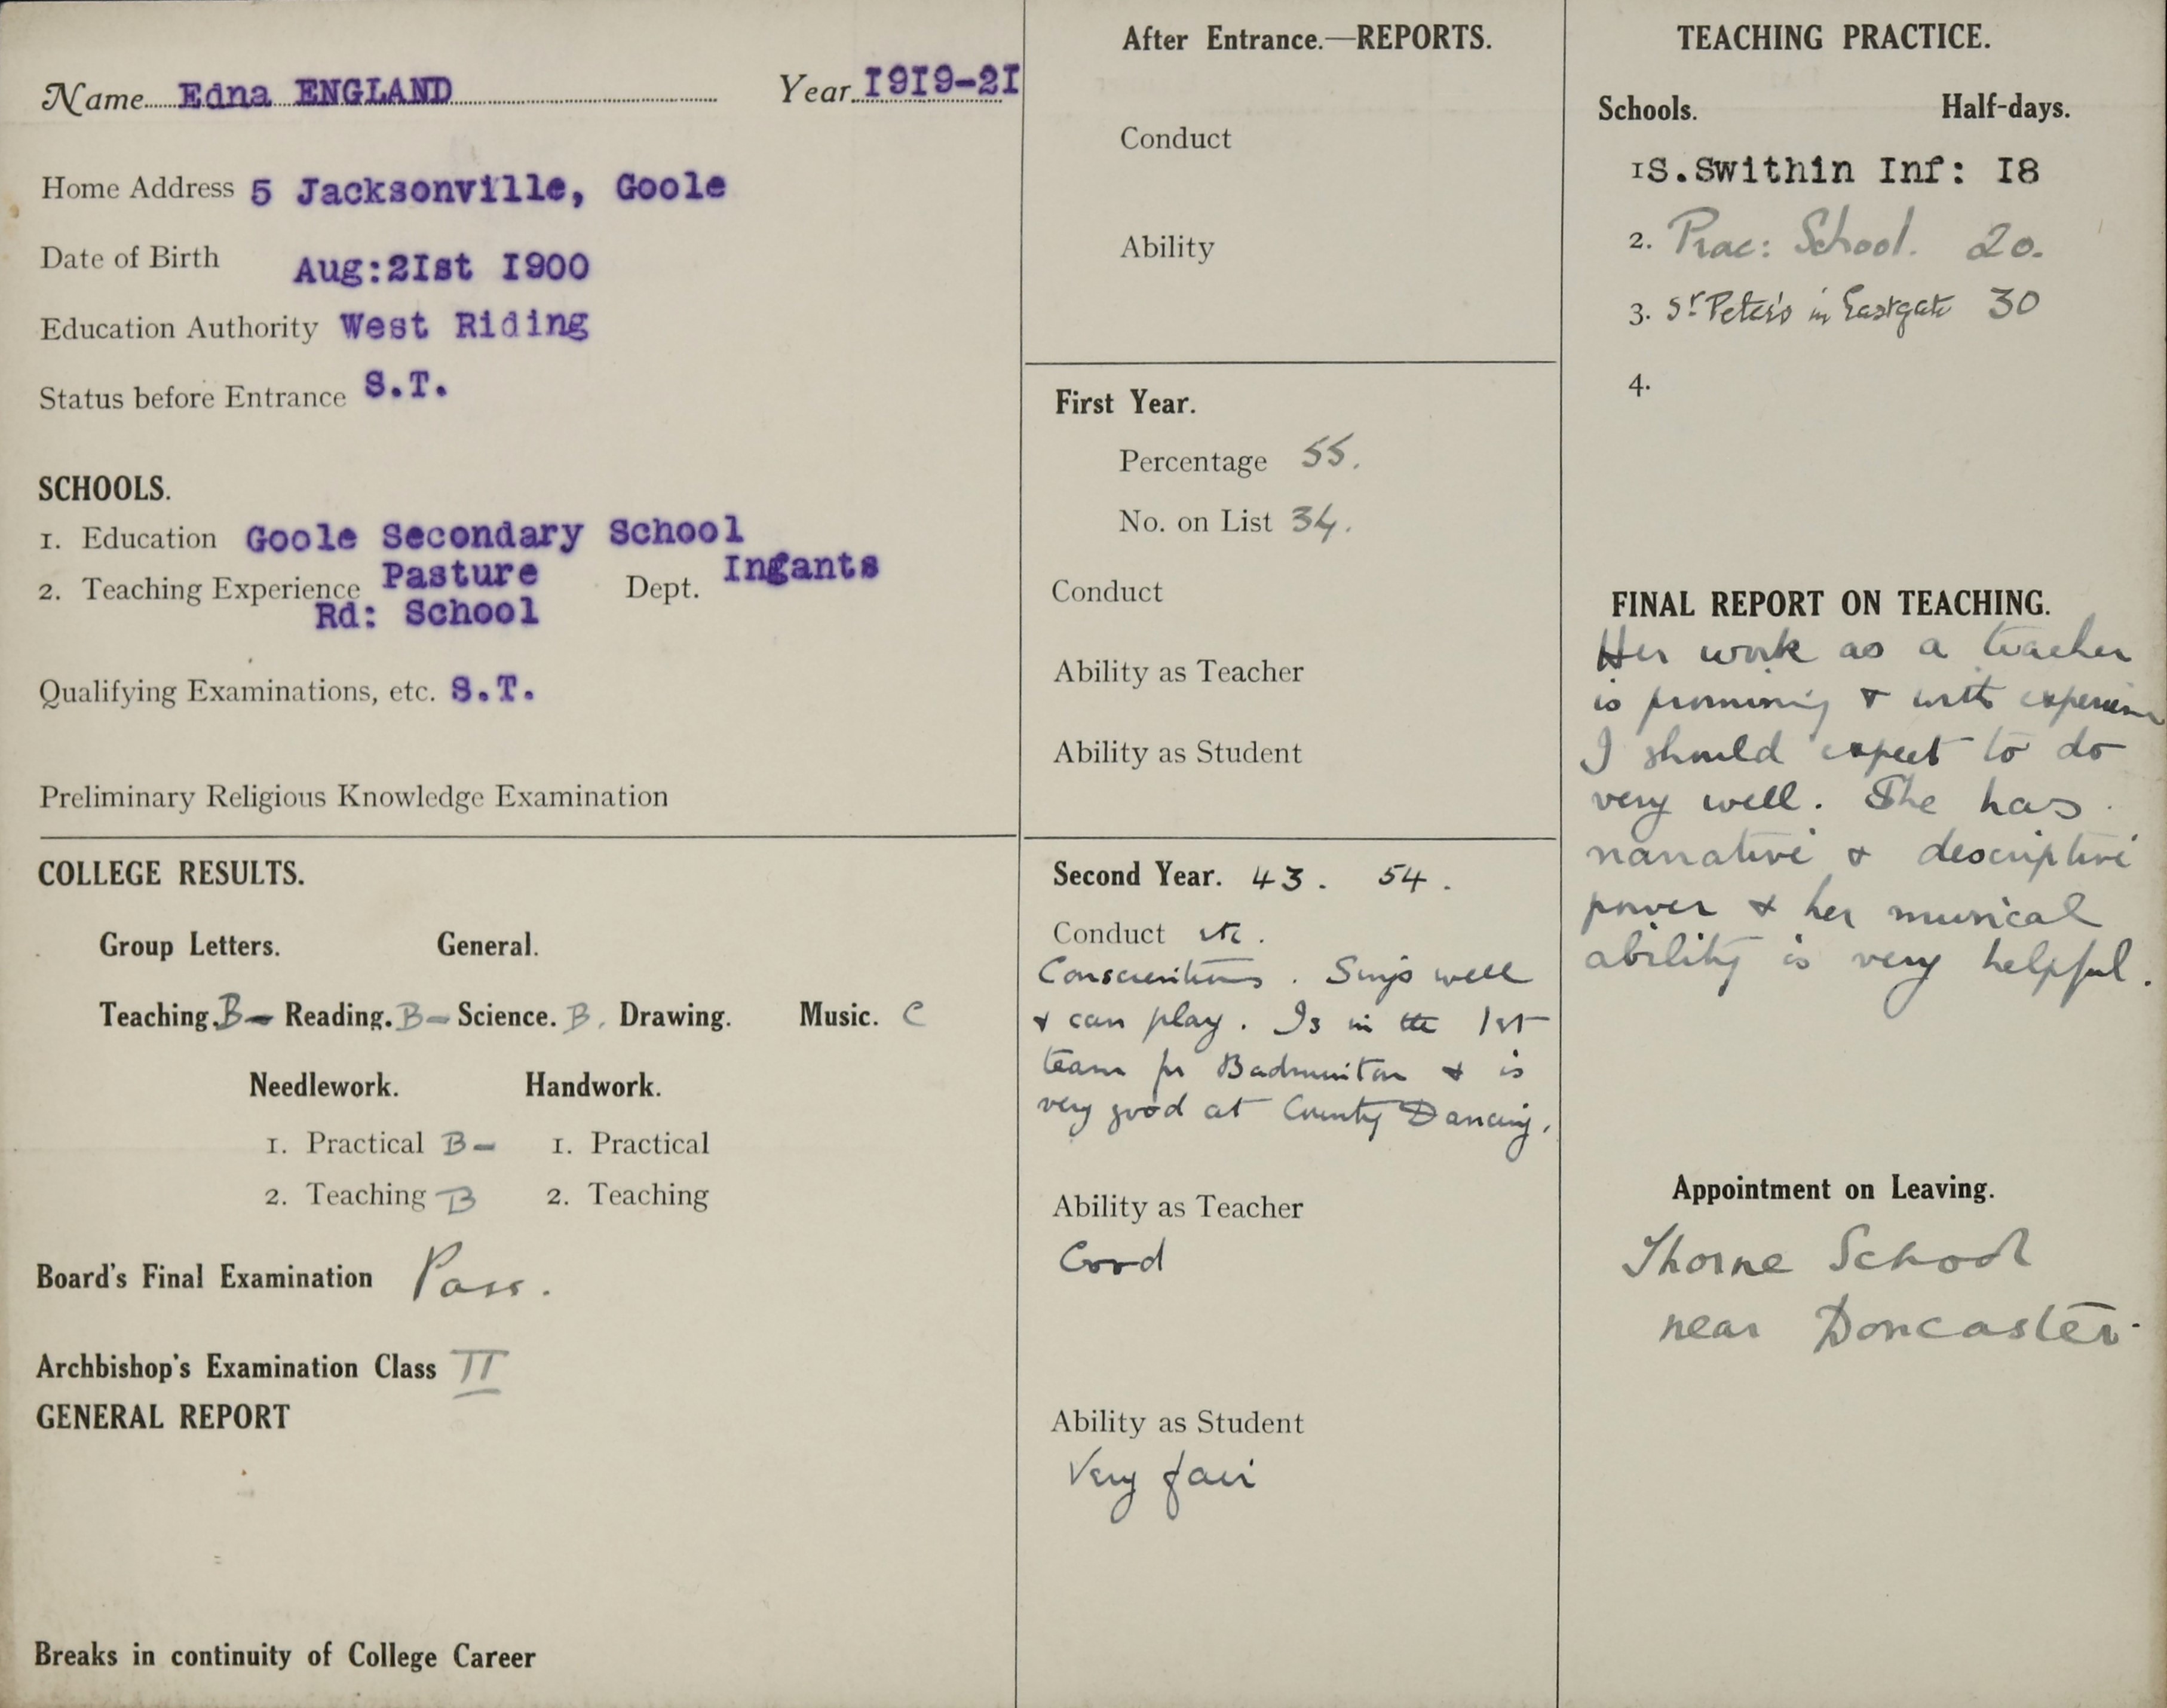 Name Edna ENGLAND Year 1919-21
Home Address 5 Jacksonville, Goole
Date of Birth Aug:21st 1900
Education Authority West Riding
Status before Entrance S.T.
SCHOOLS.
1. Education Goole Secondary School
2. Teaching Experience Pasture Dept. Ingants
Rd: School
Qualifying Examinations, etc. S.T.
Preliminary Religious Knowledge Examination
COLLEGE RESULTS.
Group Letters. General.
Teaching. B- Reading. B- Science. B. Drawing. Music. C
Needlework. Handwork.
1. Practical B- 1. Practical
2. Teaching B 2. Teaching
Board's Final Examination Pass.
Archbishop's Examination Class II
GENERAL REPORT
Breaks in continuity of College Career
After Entrance.—REPORTS.
Conduct
Ability
First Year.
Percentage 55.
No. on List 34.
Conduct
Ability as Teacher
Ability as Student
Second Year. 43. 54.
Conduct
Conscientious. Sings well
& can play. Is in the 1st
team for Badminton & is
very good at Country Dancing.
Ability as Teacher
Good
Ability as Student
Very fair
TEACHING PRACTICE.
Schools. Half-days.
1S.Swithin Inf: 18
2. Prac: School. 20.
3. St Peter's in Eastgate 30
4.
FINAL REPORT ON TEACHING.
Her work as a teacher
is promising & with experience
I should expect to do
very well. She has
narrative & descriptive
power & her musical
ability is very helpful.
Appointment on Leaving.
Thorne School
near Doncaster.